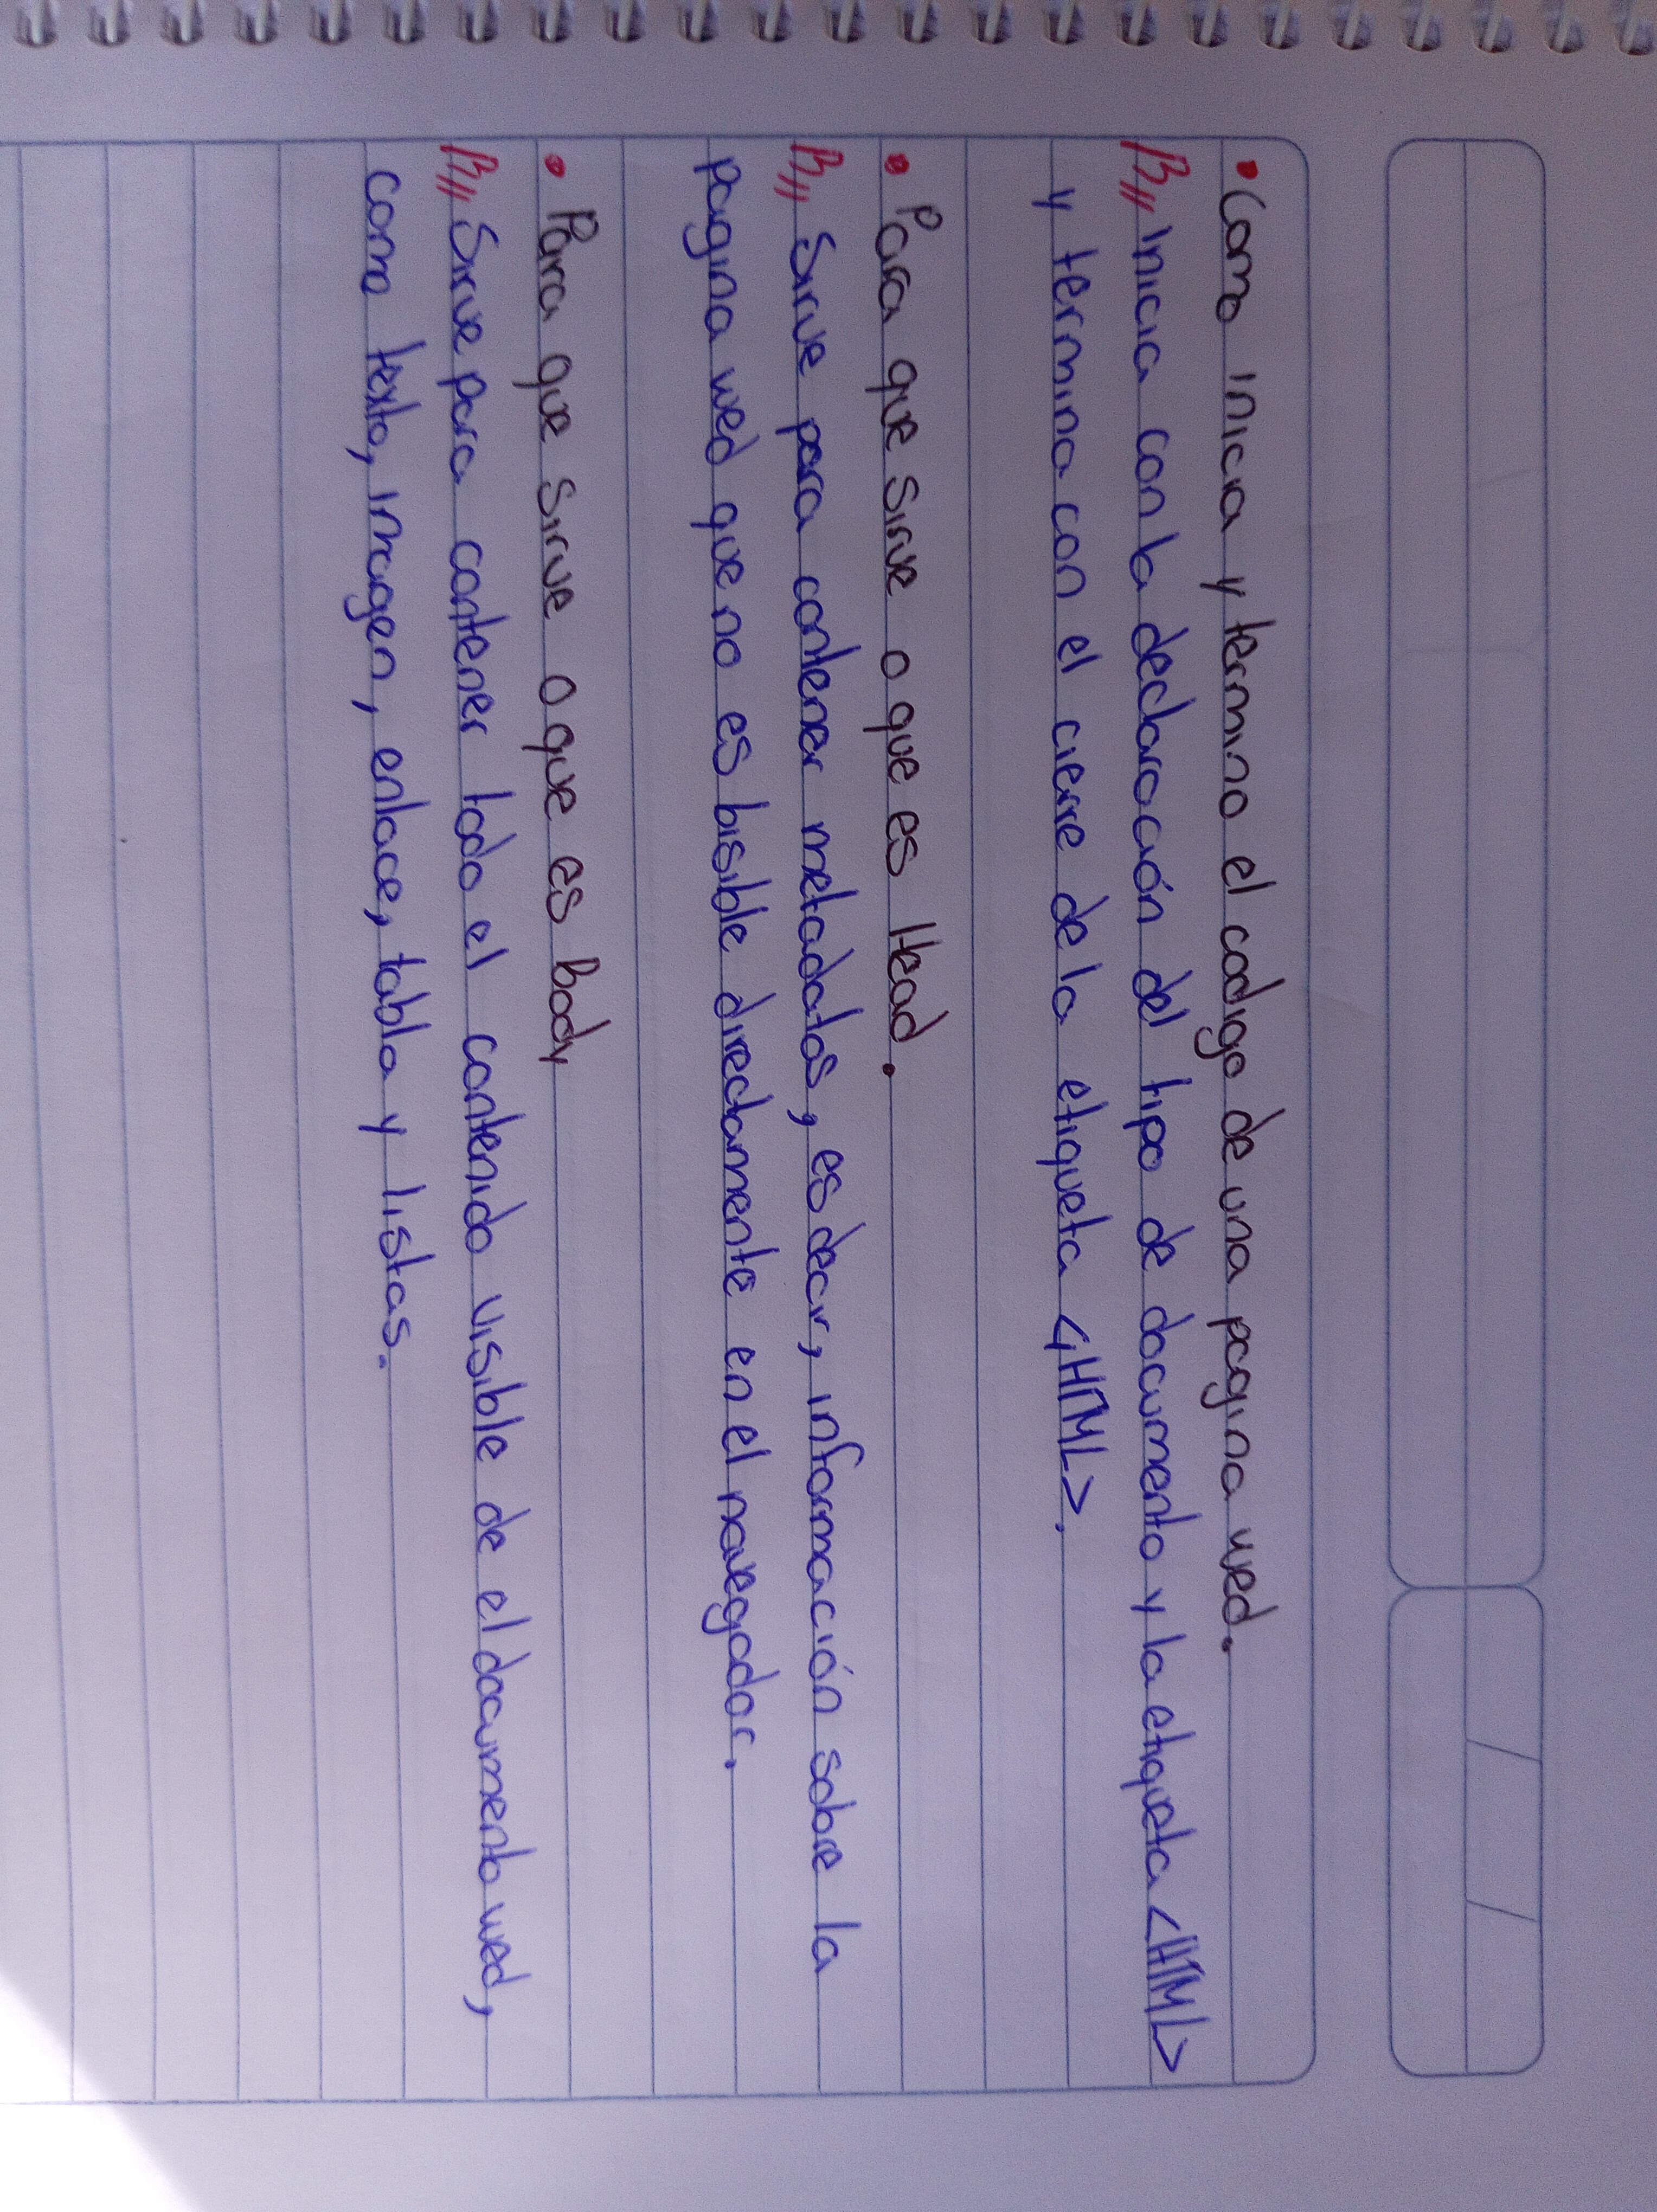 • Como inicia y termina el codigo de una pagina wed.
R// Inicia con la declaración del tipo de documento y la etiqueta <HTML>
y termina con el cierre de la etiqueta </HTML>.
• Para que sirve o que es Head.
R// Sirve para contener metadatos, es decir, información sobre la
pagina wed que no es bisible directamente en el navegador.
• Para que sirve o que es body
R// Sirve para contener todo el contenido visible de el documento wed,
como texto, imagen, enlace, tabla y listas.